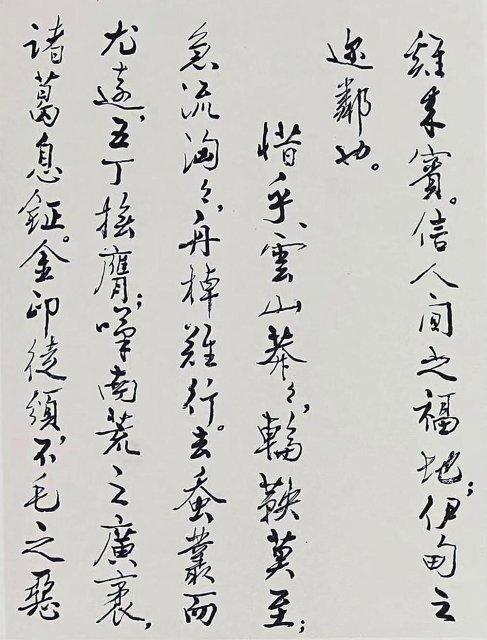 雞來賓。信人間之福地；伊甸之
近鄰也。
惜乎、雲山莽々，輪鞅莫至；
急流洶々，舟棹難行。去蚕叢而
尤遠，五丁撫膺；嘆南荒之廣袤，
諸葛息鉦。金印徒頒，不毛之惡